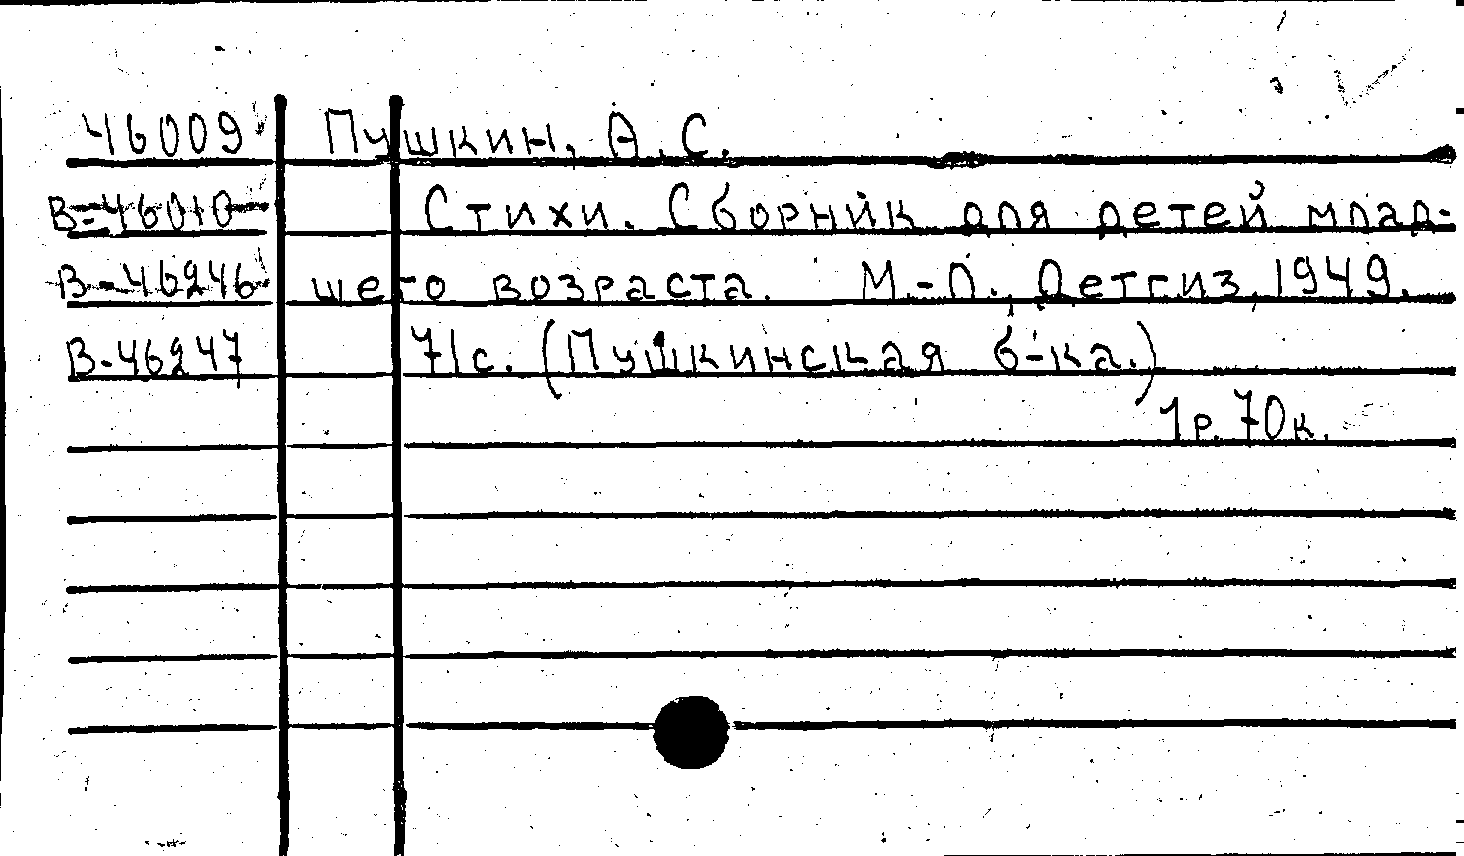 46009 Пушкин, А.С.
В-46010 Стихи. Сборник для детей млад-
В-46246 шего возраста. М.-Л., Детгиз, 1949.
В-46247 71с. (Пушкинская б-ка.)
1р. 70к.